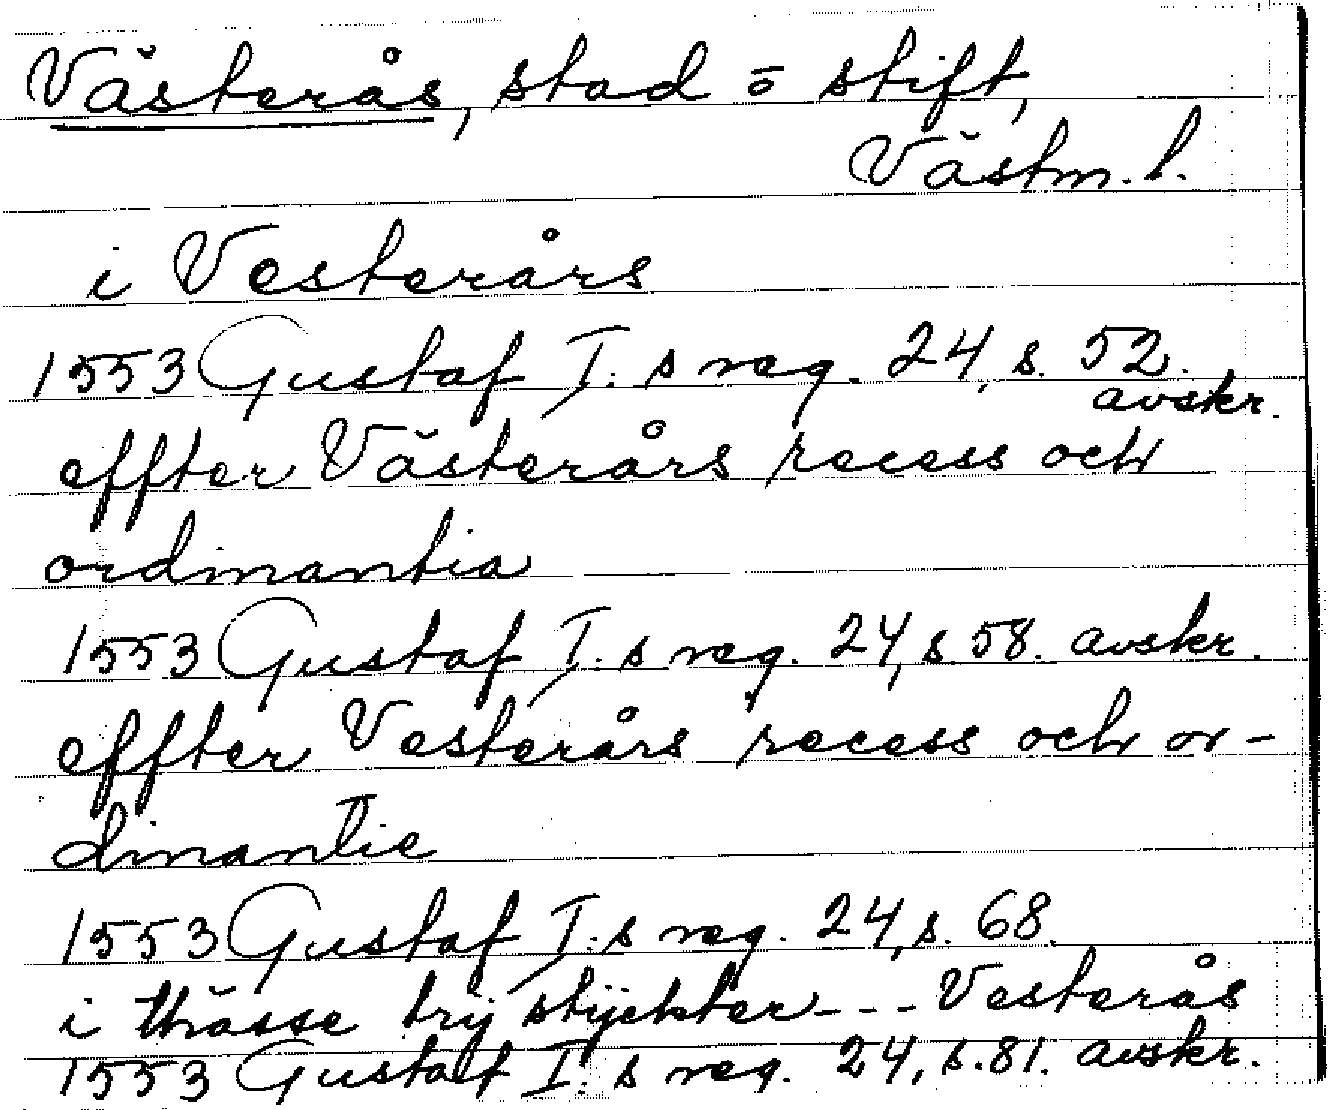 Västerås, stad o stift,
Västm. l.
i Vesterårs
1553 Gustaf I:s reg. 24, s. 52.
avskr.
effter Västerårs recess och
ordinantia
1553 Gustaf I:s reg. 24, s 58. avskr.
effter Vesterårs recess och or-
dinantie
1553 Gustaf I:s reg. 24, s. 68.
i thässe trij stijckter - - - Vesterås
1553 Gustaf I:s reg. 24, s. 81. avskr.